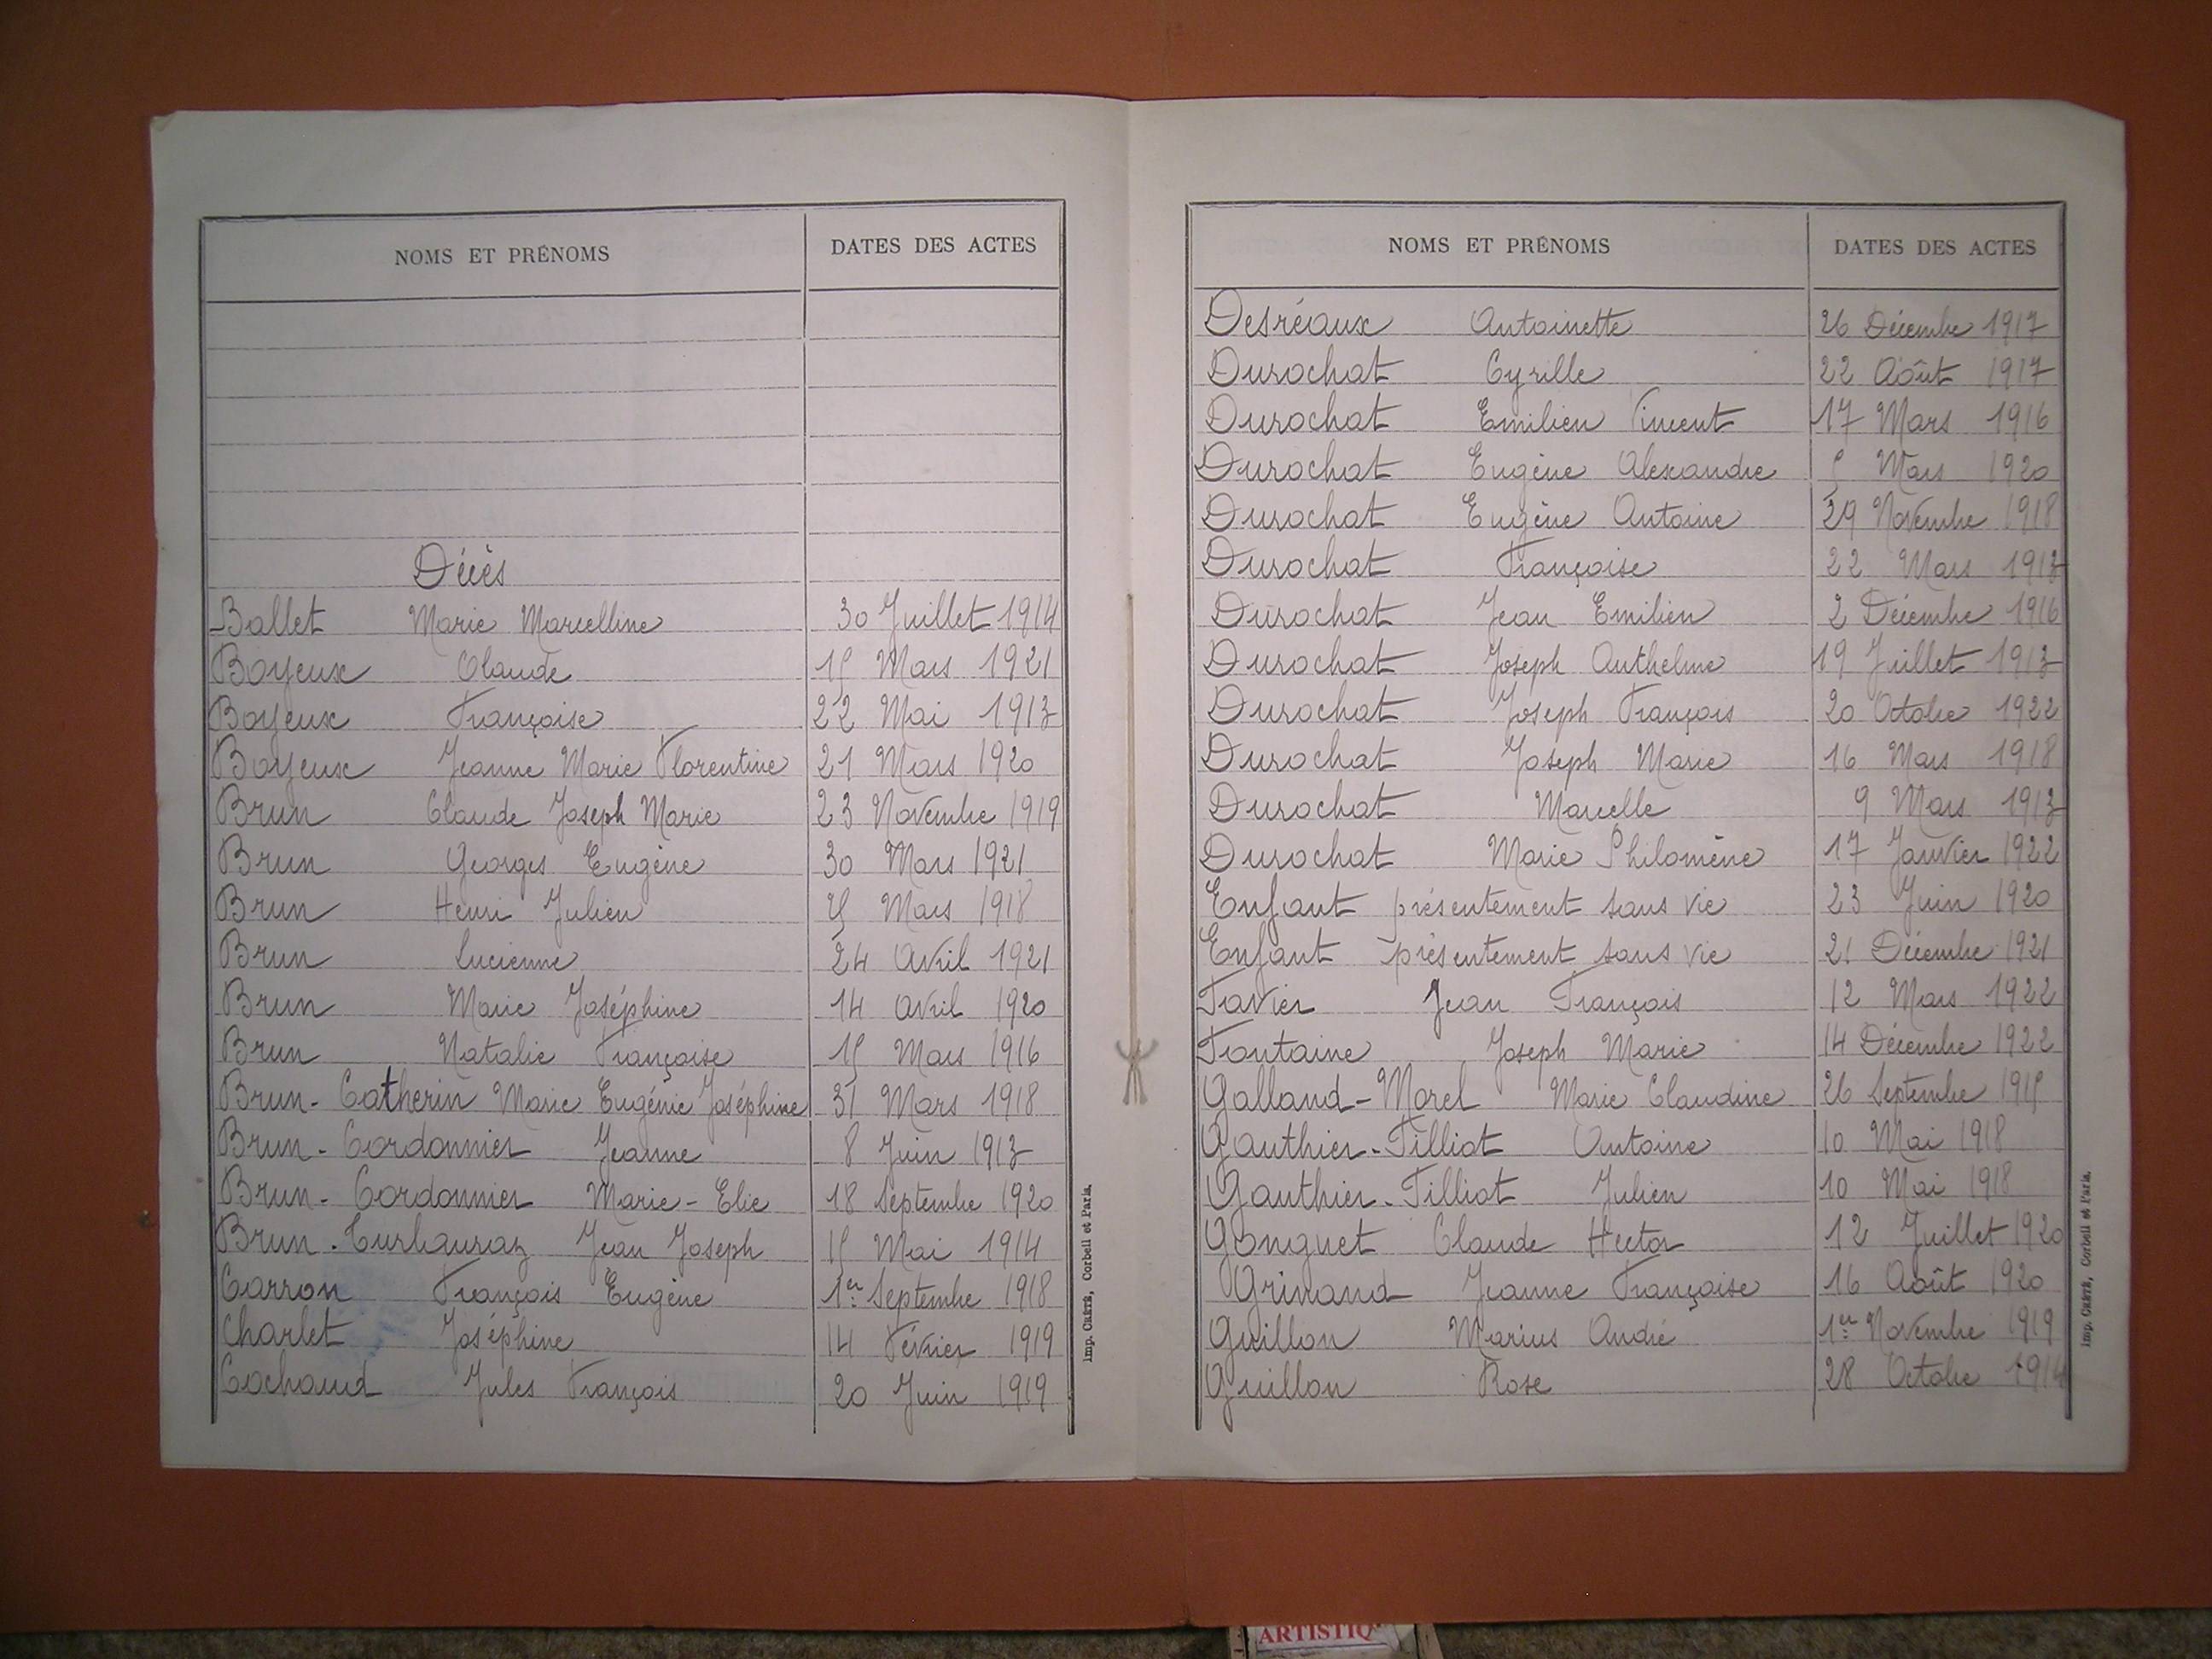 NOMS ET PRÉNOMS DATES DES ACTES
Décès
Ballet Marie Marcelline 30 Juillet 1914
Boyeux Claude 15 Mars 1921
Boyeux Françoise 22 Mai 1913
Boyeux Jeanne Marie Florentine 21 Mars 1920
Brun Claude Joseph Marie 23 Novembre 1919
Brun Georges Eugène 30 Mars 1921
Brun Henri Julien Mars 1918
Brun Lucienne 24 Avril 1921
Brun Marie Joséphine 14 Avril 1920
Brun Natalie Françoise 15 Mars 1916
Brun-Catherin Marie Eugénie Joséphine 31 Mars 1918
Brun-Cordonnier Jeanne 8 Juin 1913
Brun-Cordonnier Marie-Elie 18 Septembre 1920
Brun-Curhauraz Jean Joseph 15 Mai 1914
Carron François Eugène 1er Septembre 1918
Charlet Joséphine 14 Février 1919
Cochaud Jules François 20 Juin 1919
Imp. CRÉTÉ, Corbeil et Paris.
NOMS ET PRÉNOMS DATES DES ACTES
Desréaux Antoinette 26 Décembre 1917
Durochat Cyrille 22 Août 1917
Durochat Emilien Vincent 17 Mars 1916
Durochat Eugène Alexandre 5 Mars 1920
Durochat Eugène Antoine 29 Novembre 1918
Durochat Françoise 22 Mars 1913
Durochat Jean Emilien 2 Décembre 1916
Durochat Joseph Anthelme 19 Juillet 1913
Durochat Joseph François 20 Octobre 1922
Durochat Joseph Marie 16 Mars 1918
Durochat Marcelle 9 Mars 1913
Durochat Marie Philomène 17 Janvier 1922
Enfant présentement sans vie 23 Juin 1920
Enfant présentement sans vie 21 Décembre 1921
Favier Jean François 12 Mars 1922
Fontaine Joseph Marie 14 Décembre 1922
Galland-Morel Marie Claudine 26 Septembre 1915
Gauthier-Tilliot Antoine 10 Mai 1918
Gauthier-Tilliot Julien 10 Mai 1918
Gonguet Claude Hector 12 Juillet 1920
Grinand Jeanne Françoise 16 Août 1920
Guillon Marius André 1er Novembre 1919
Guillon Rose 28 Octobre 1914
Imp. CRÉTÉ, Corbeil et Paris.
ARTISTIQ